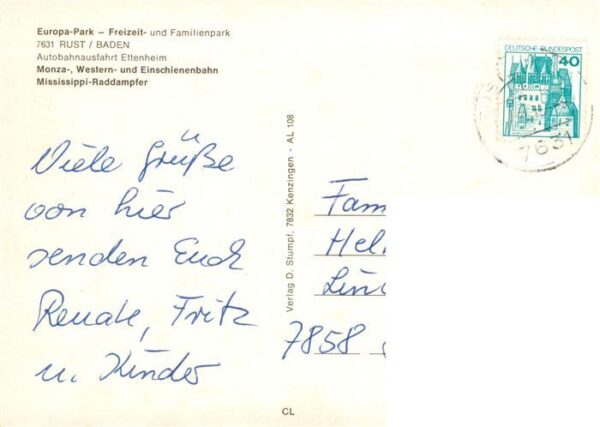 Europa-Park – Freizeit- und Familienpark
7631 RUST / BADEN
Autobahnausfahrt Ettenheim
Monza-, Western- und Einschienenbahn
Mississippi-Raddampfer
DEUTSCHE BUNDESPOST
40
7631
Viele Grüße
von hier
senden Euch
Renate, Fritz
u. Kinder
Verlag D. Stumpf, 7832 Kenzingen - AL 108
Fam
Hel
Lin
7858
CL